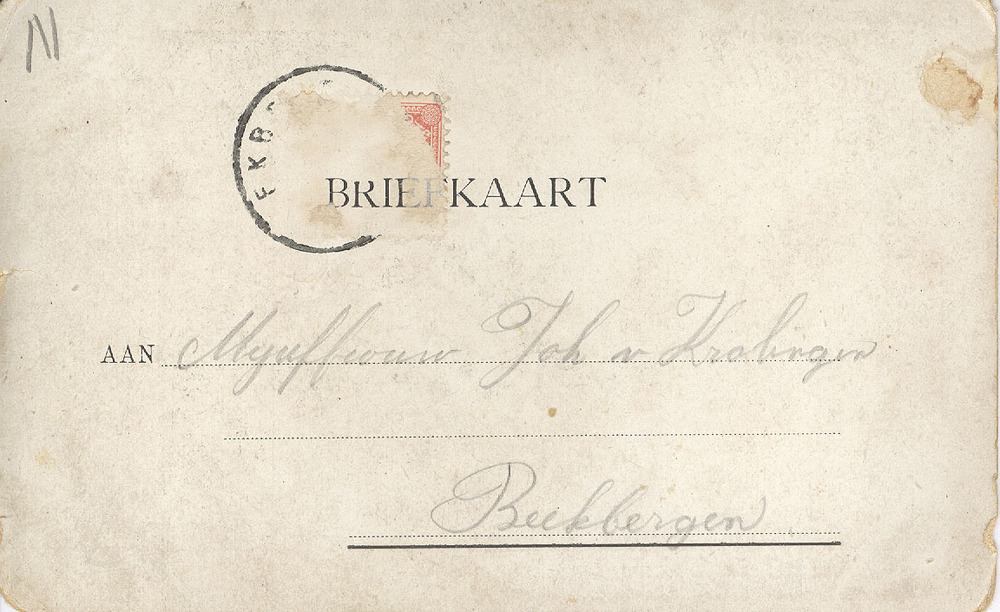 EKB
BRIEFKAART
AAN Mejuffrouw Joh v Krobingen
Beekbergen